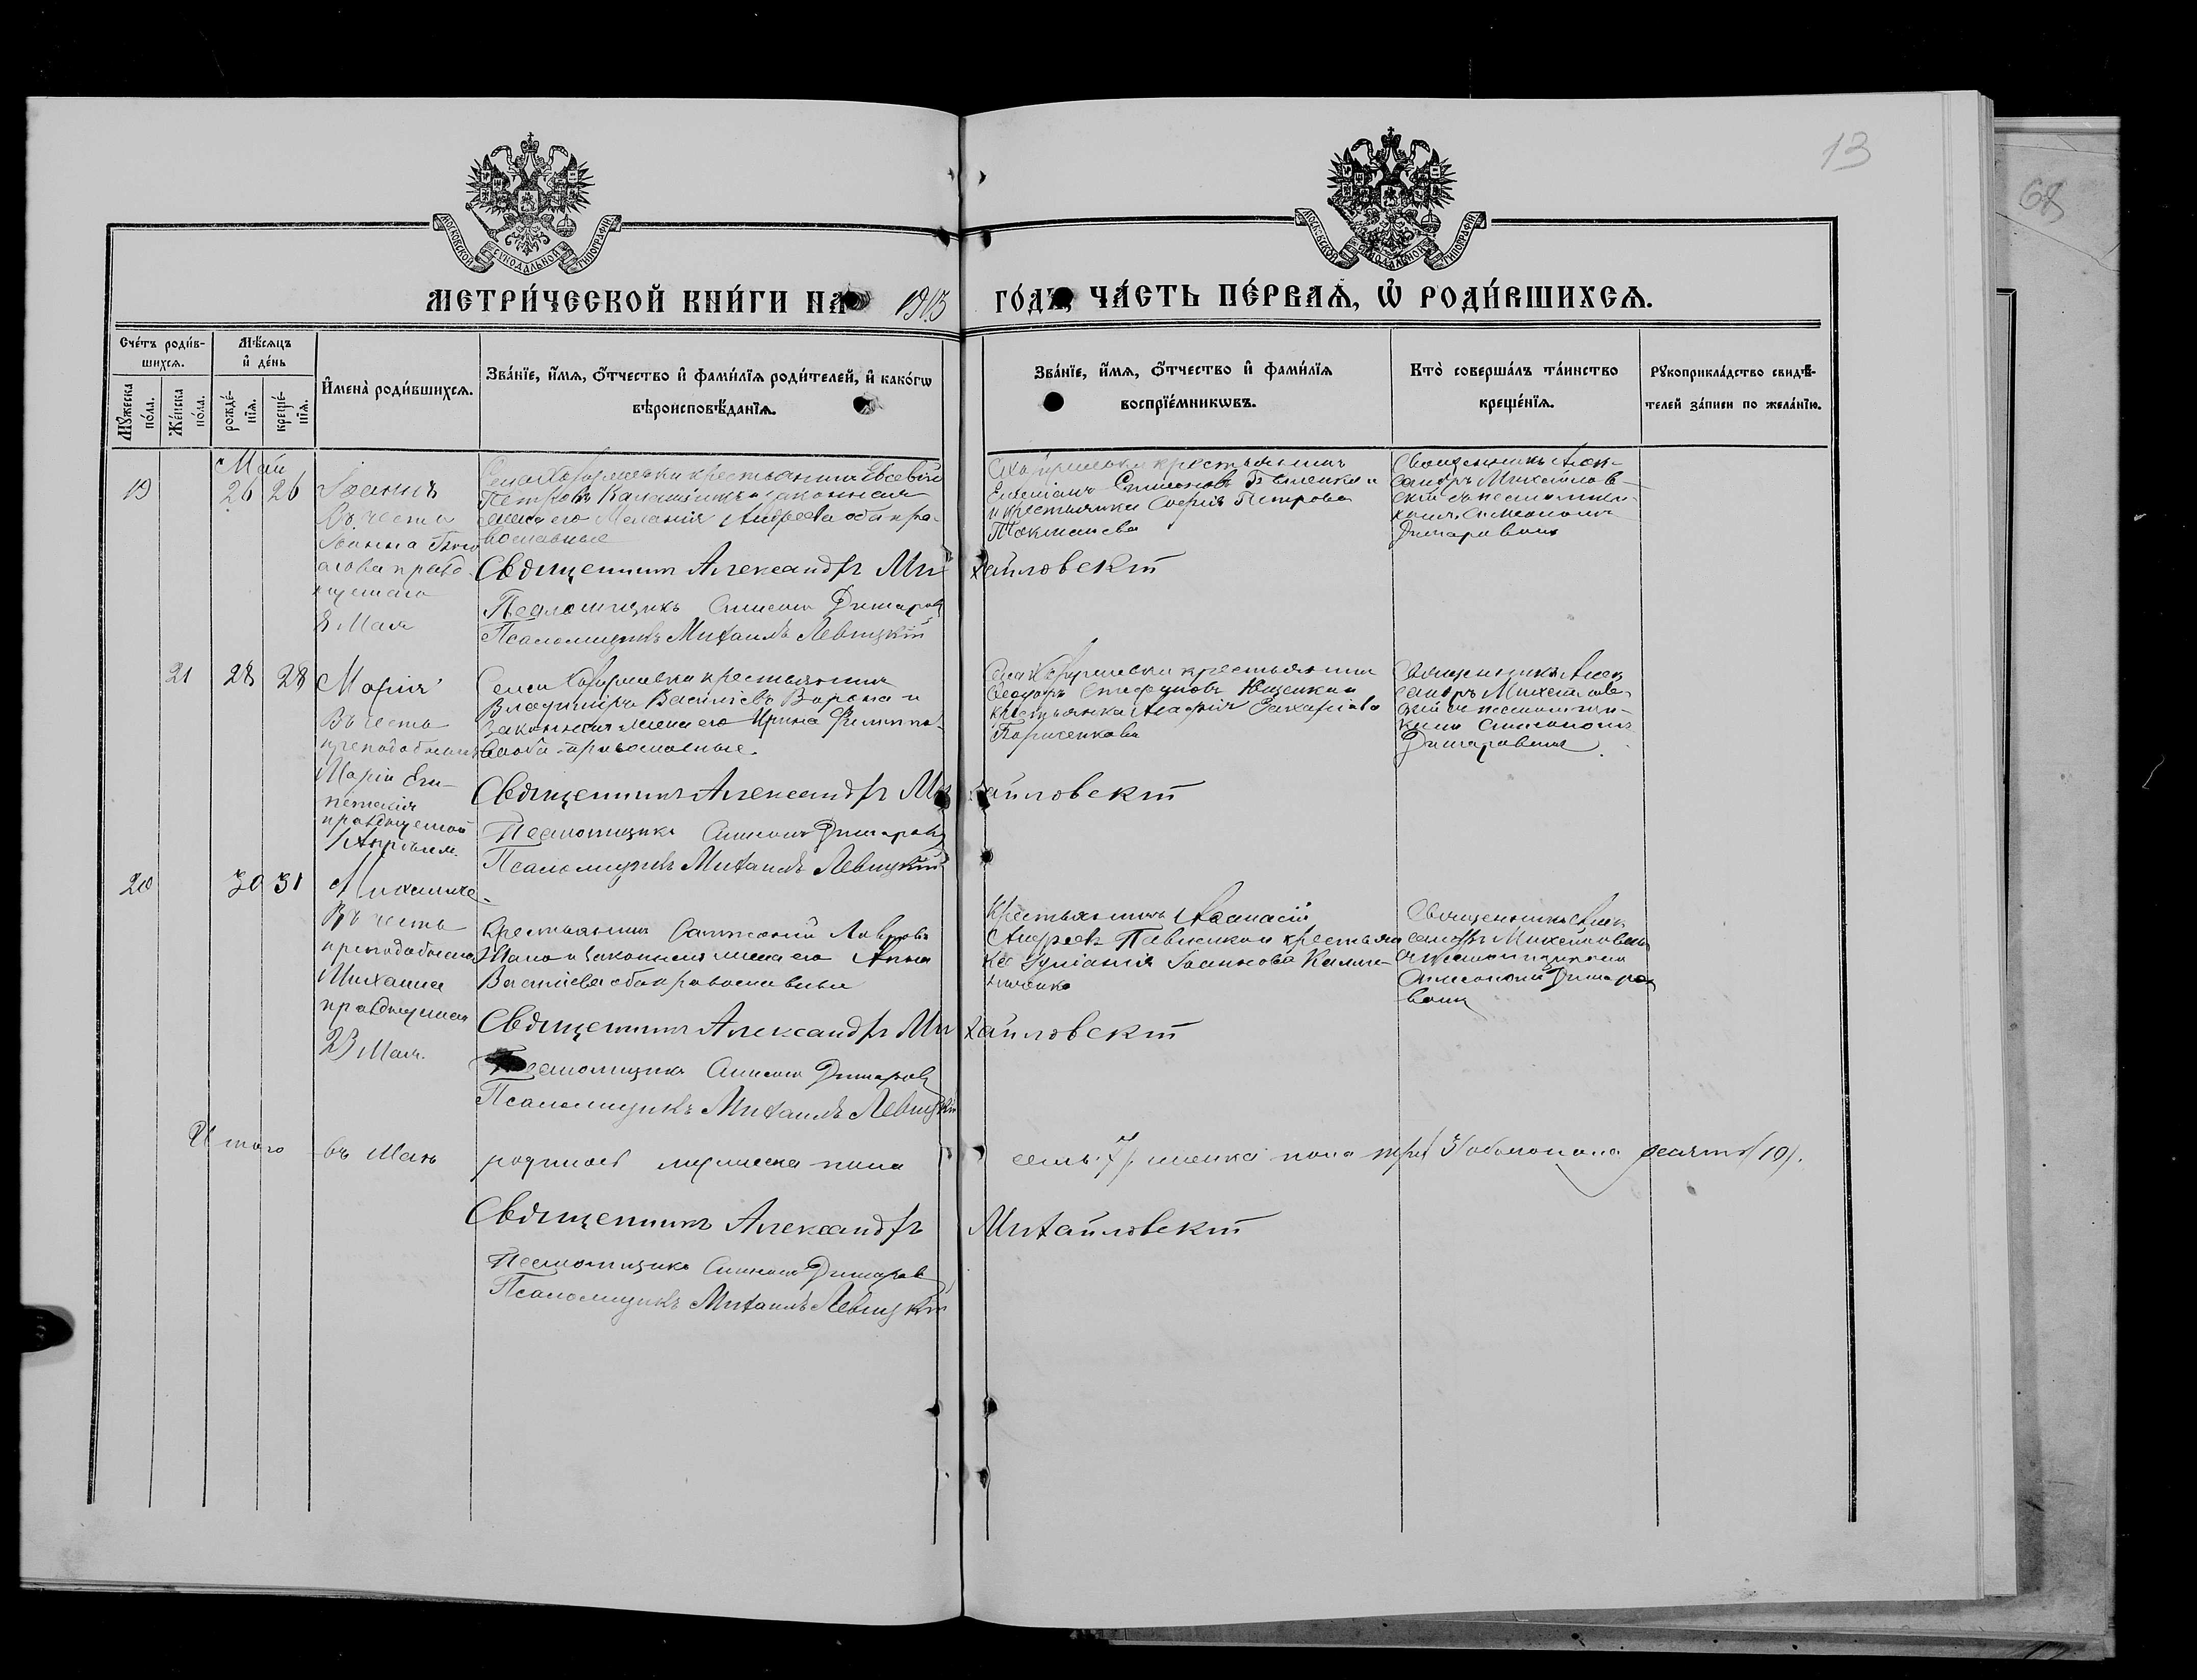 13
68
МОСКОВСКОЙ СѴНОДАЛЬНОЙ ТИПОГРАФІИ
МОСКОВСКОЙ СѴНОДАЛЬНОЙ ТИПОГРАФІИ
МЕТРИ́ЧЕСКОЙ КНИ́ГИ НА 1913 ГО́ДЪ, ЧА́СТЬ ПЕ́РВАѦ, Ѽ РОДИ́ВШИХСѦ.
Сче́тъ роди́в-
шихсѧ.
Мꙋжеска по́ла.
Же́нска по́ла.
Мѣ́сѧцъ
и҆ де́нь
рожде́-
нїѧ.
креще́-
нїѧ.
И҆мена̀ роди́вшихсѧ.
Зва́нїе, и҆́мѧ, ѻ҆́тчество и҆ фами́лїѧ роди́телей, и҆ како́гѡ
вѣроисповѣ́данїѧ.
Зва́нїе, и҆́мѧ, ѻ҆́тчество и҆ фами́лїѧ
воспрїе́мникѡвъ.
Кто̀ соверша́лъ та́инство
креще́нїѧ.
Рꙋкоприкла́дство свидѣ́-
телей за́писи по жела́нїю.
Май
19 26 26 Іоаннъ
Въ честь
Іоанна Бого
слова празд
нуемаго
8 Мая
крестьянинъ Евсевій
Петровъ и законная
жена его Меланія Андреева оба пра-
вославные
крестьянинъ
Симоновъ
и крестьянка Софія Петрова
Священникъ Алек-
сандръ Михайлов-
скій съ псаломщи-
комъ Симеономъ
Димаровымъ
Священникъ Александръ Михайловскій
Псаломщикъ Симеонъ Димаровъ
Псаломщикъ Михаилъ Левицкій
21 28 28 Марія
Въ честь
преподобныя
Маріи Еги-
петскія
празднуемой
1 Апрѣля.
Села крестьянинъ
Владиміръ Василіевъ Ворона и
законная жена его Ирина Филиппо-
ва оба православные.
Села крестьянинъ
Ѳеодоръ Стефановъ Ющенко и
крестьянка Захаріева
Священникъ Алек
сандръ Михайлов-
скій съ псаломщи-
комъ Симеономъ
Димаровымъ.
Священникъ Александръ Михайловскій
Псаломщикъ Симеонъ Димаровъ
Псаломщикъ Михаилъ Левицкій
20 30 31 Михаилъ
Въ честь
преподобнаго
Михаила
празднуемаго
23 Мая.
Крестьянинъ
и законная жена его Анна
Василіева оба православные
Крестьянинъ Аѳанасій
Андреевъ Павленко и крестьян
ка Іуліанія Іоаннова
Священникъ Алек
сандръ Михайловскій
съ псаломщикомъ
Симеономъ Димаро
вымъ
Священникъ Александръ Михайловскій
Псаломщикъ Симеонъ Димаровъ
Псаломщикъ Михаилъ Левицкій
Итого въ Маѣ родилось мужеска пола семь (7), женска пола три (3) обоего пола десять (10).
Священникъ Александръ Михайловскій
Псаломщикъ Симеонъ Димаровъ
Псаломщикъ Михаилъ Левицкій